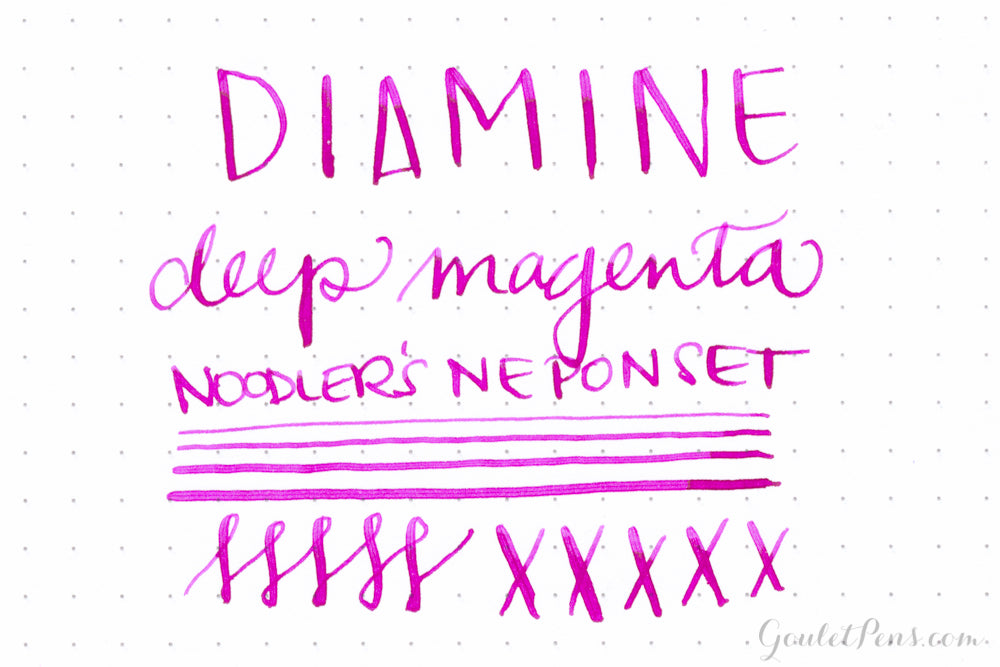 DIAMINE
deep magenta
NOODLER'S NEPONSET
fffff XXXXX
GouletPens.com